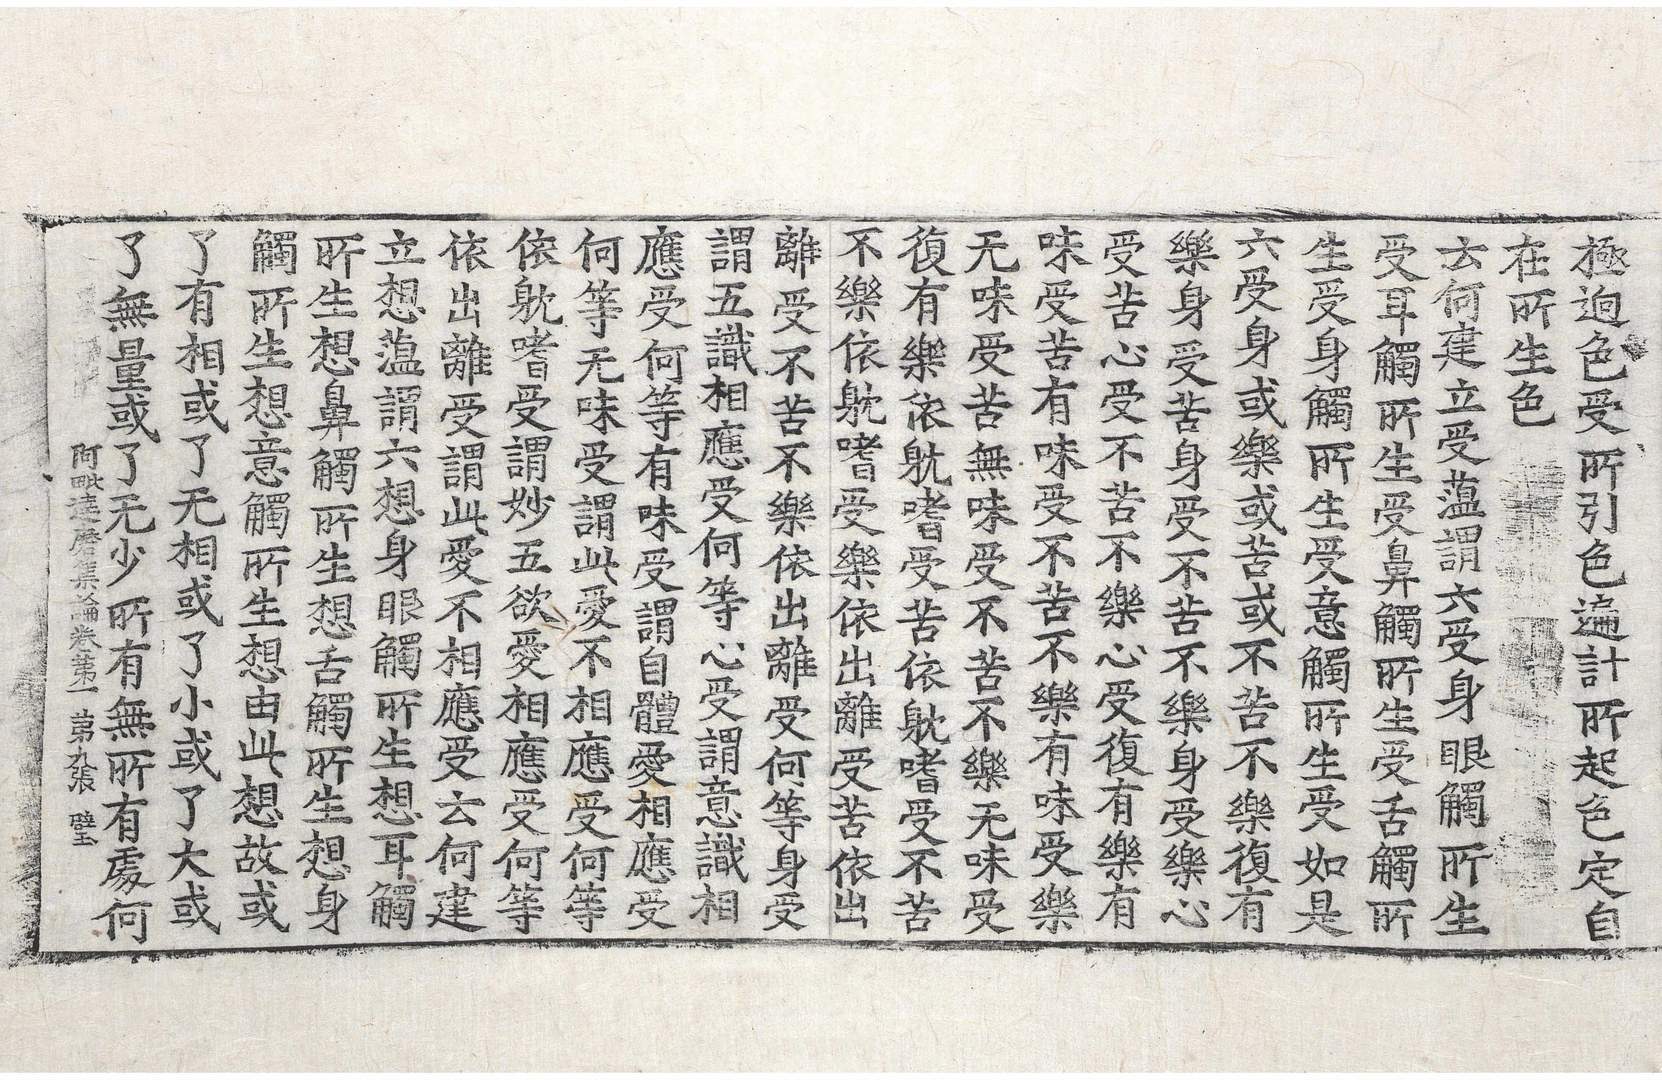 極迥色受所引色遍計所起色定自
在所生色
云何建立受蕰謂六受身眼觸所生
受耳觸所生受鼻觸所生受舌觸所
生受身觸所生受意觸所生受如是
六受身或樂或苦或不苦不樂復有
樂身受苦身受不苦不樂身受樂心
受苦心受不苦不樂心受復有樂有
味受苦有味受不苦不樂有味受樂
无味受苦無味受不苦不樂无味受
復有樂依躭嗜受苦依躭嗜受不苦
不樂依躭嗜受樂依出離受苦依出
離受不苦不樂依出離受何等身受
謂五識相應受何等心受謂意識相
應受何等有味受謂自體愛相應受
何等无味受謂此愛不相應受何等
依躭嗜受謂妙五欲愛相應受何等
依出離受謂此愛不相應受云何建
立想蕰謂六想身眼觸所生想耳觸
所生想鼻觸所生想舌觸所生想身
觸所生想意觸所生想由此想故或
了有相或了无相或了小或了大或
了無量或了无少所有無所有處何
阿毗達磨集論卷苐一 苐九張 璧